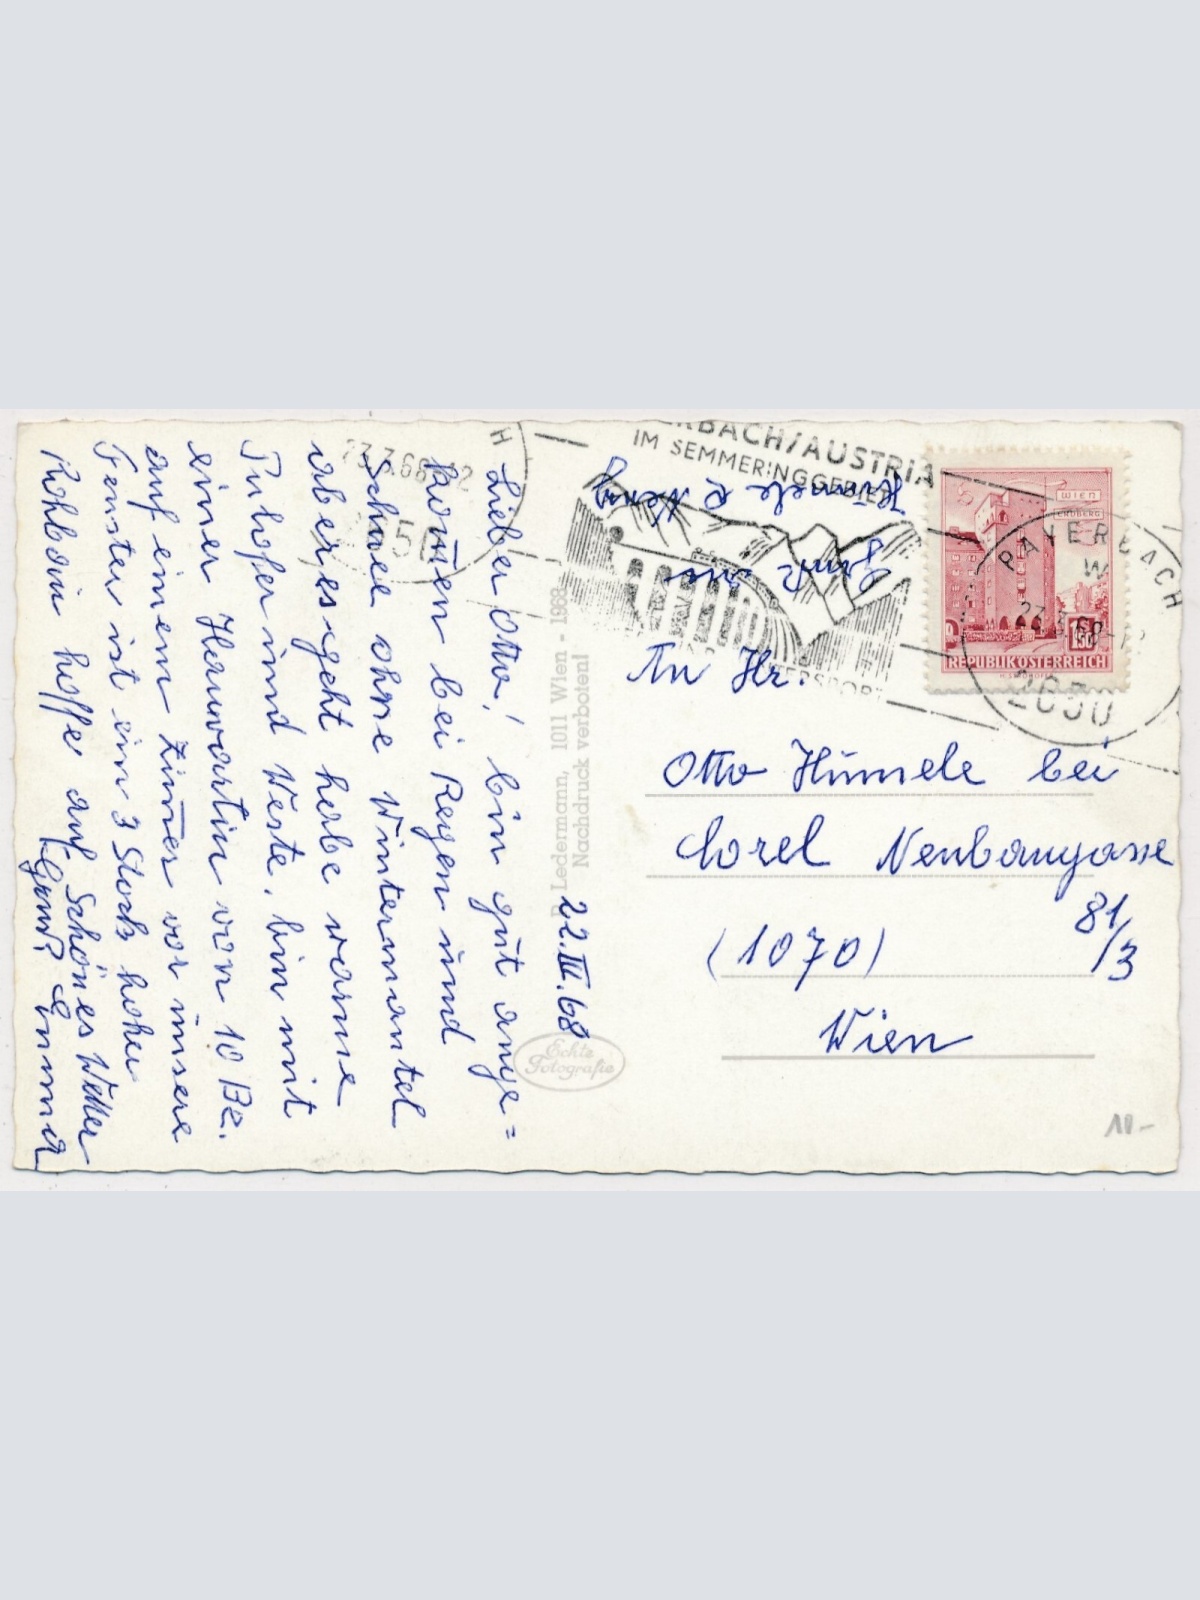 22.III.68
Lieber Otto! bin gut ange=
komen bei Regen und
Schnee ohne Wintermantel
aber es geht habe warme
und Weste, bin mit
einer von 10 Be.
auf einem Zimer vor unsere
Fenster ist ein 3 Stock hoher
hoffe auf Schönes Wetter
Gruß Emma
Gruß
An Hr.
Otto Hümele bei
Lorel Neubaugasse
81/3
(1070)
Wien
P. Ledermann, 1011 Wien - 1968
Nachdruck verboten!
Echte
Fotografie
RBACH/AUSTRIA
IM SEMMERINGGEBIET
PAYERBACH
23.3.68-12
2650
23.3.68-12
WIEN
ERDBERG
1.50
REPUBLIK ÖSTERREICH
10-